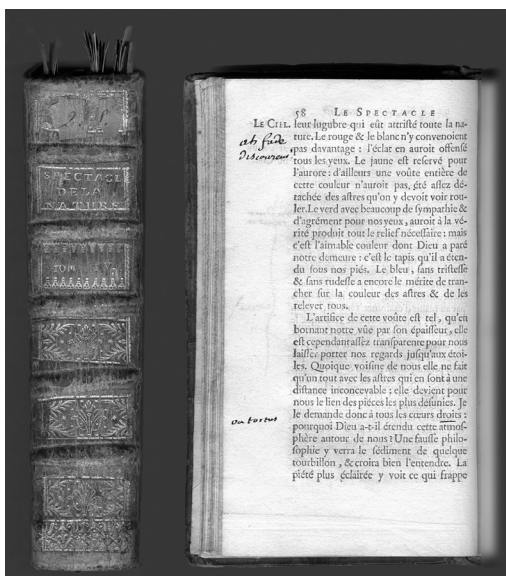 SPECTACL
DE LA
NATURE
TOM
58 LE SPECTACLE
LE CIEL. leur lugubre qui eſt attriſté toute la na-
ture. Le rouge & le blanc n'y convenoient
pas davantage : l'éclat en auroit offenſé
tous les yeux. Le jaune eſt reſervé pour
l'aurore : d'ailleurs une voûte entière de
cette couleur n'auroit pas, été aſſez dé-
tachée des aſtres qu'on y devoit voir rou-
ler. Le verd avec beaucoup de ſympathie &
d'agrément pour nos yeux, auroit à la vé-
rité produit tout le relief néceſſaire : mais
c'eſt l'aimable couleur dont Dieu a paré
notre demeure : c'eſt le tapis qu'il a éten-
du ſous nos piés. Le bleu, ſans triſteſſe
& ſans rudeſſe a encore le mérite de tran-
cher ſur la couleur des aſtres & de les
relever tous.
L'artifice de cette voûte eſt tel, qu'en
bornant notre vûe par ſon épaiſſeur, elle
eſt cependant aſſèz tranſparente pour nous
laiſſer porter nos regards juſqu'aux étoi-
les. Quoique voiſine de nous elle ne fait
qu'un tout avec les aſtres qui en ſont à une
diſtance inconcevable : elle devient pour
nous le lien des piéces les plus déſunies. Je
le demande donc à tous les cœurs droits :
pourquoi Dieu a-t-il étendu cette atmoſ-
phère autour de nous ? Une fauſſe philo-
ſophie y verra le ſédiment de quelque
tourbillon, & croira bien l'entendre. La
piété plus éclairée y voit ce qui frappe
ah fade
discoureur
ou tortus